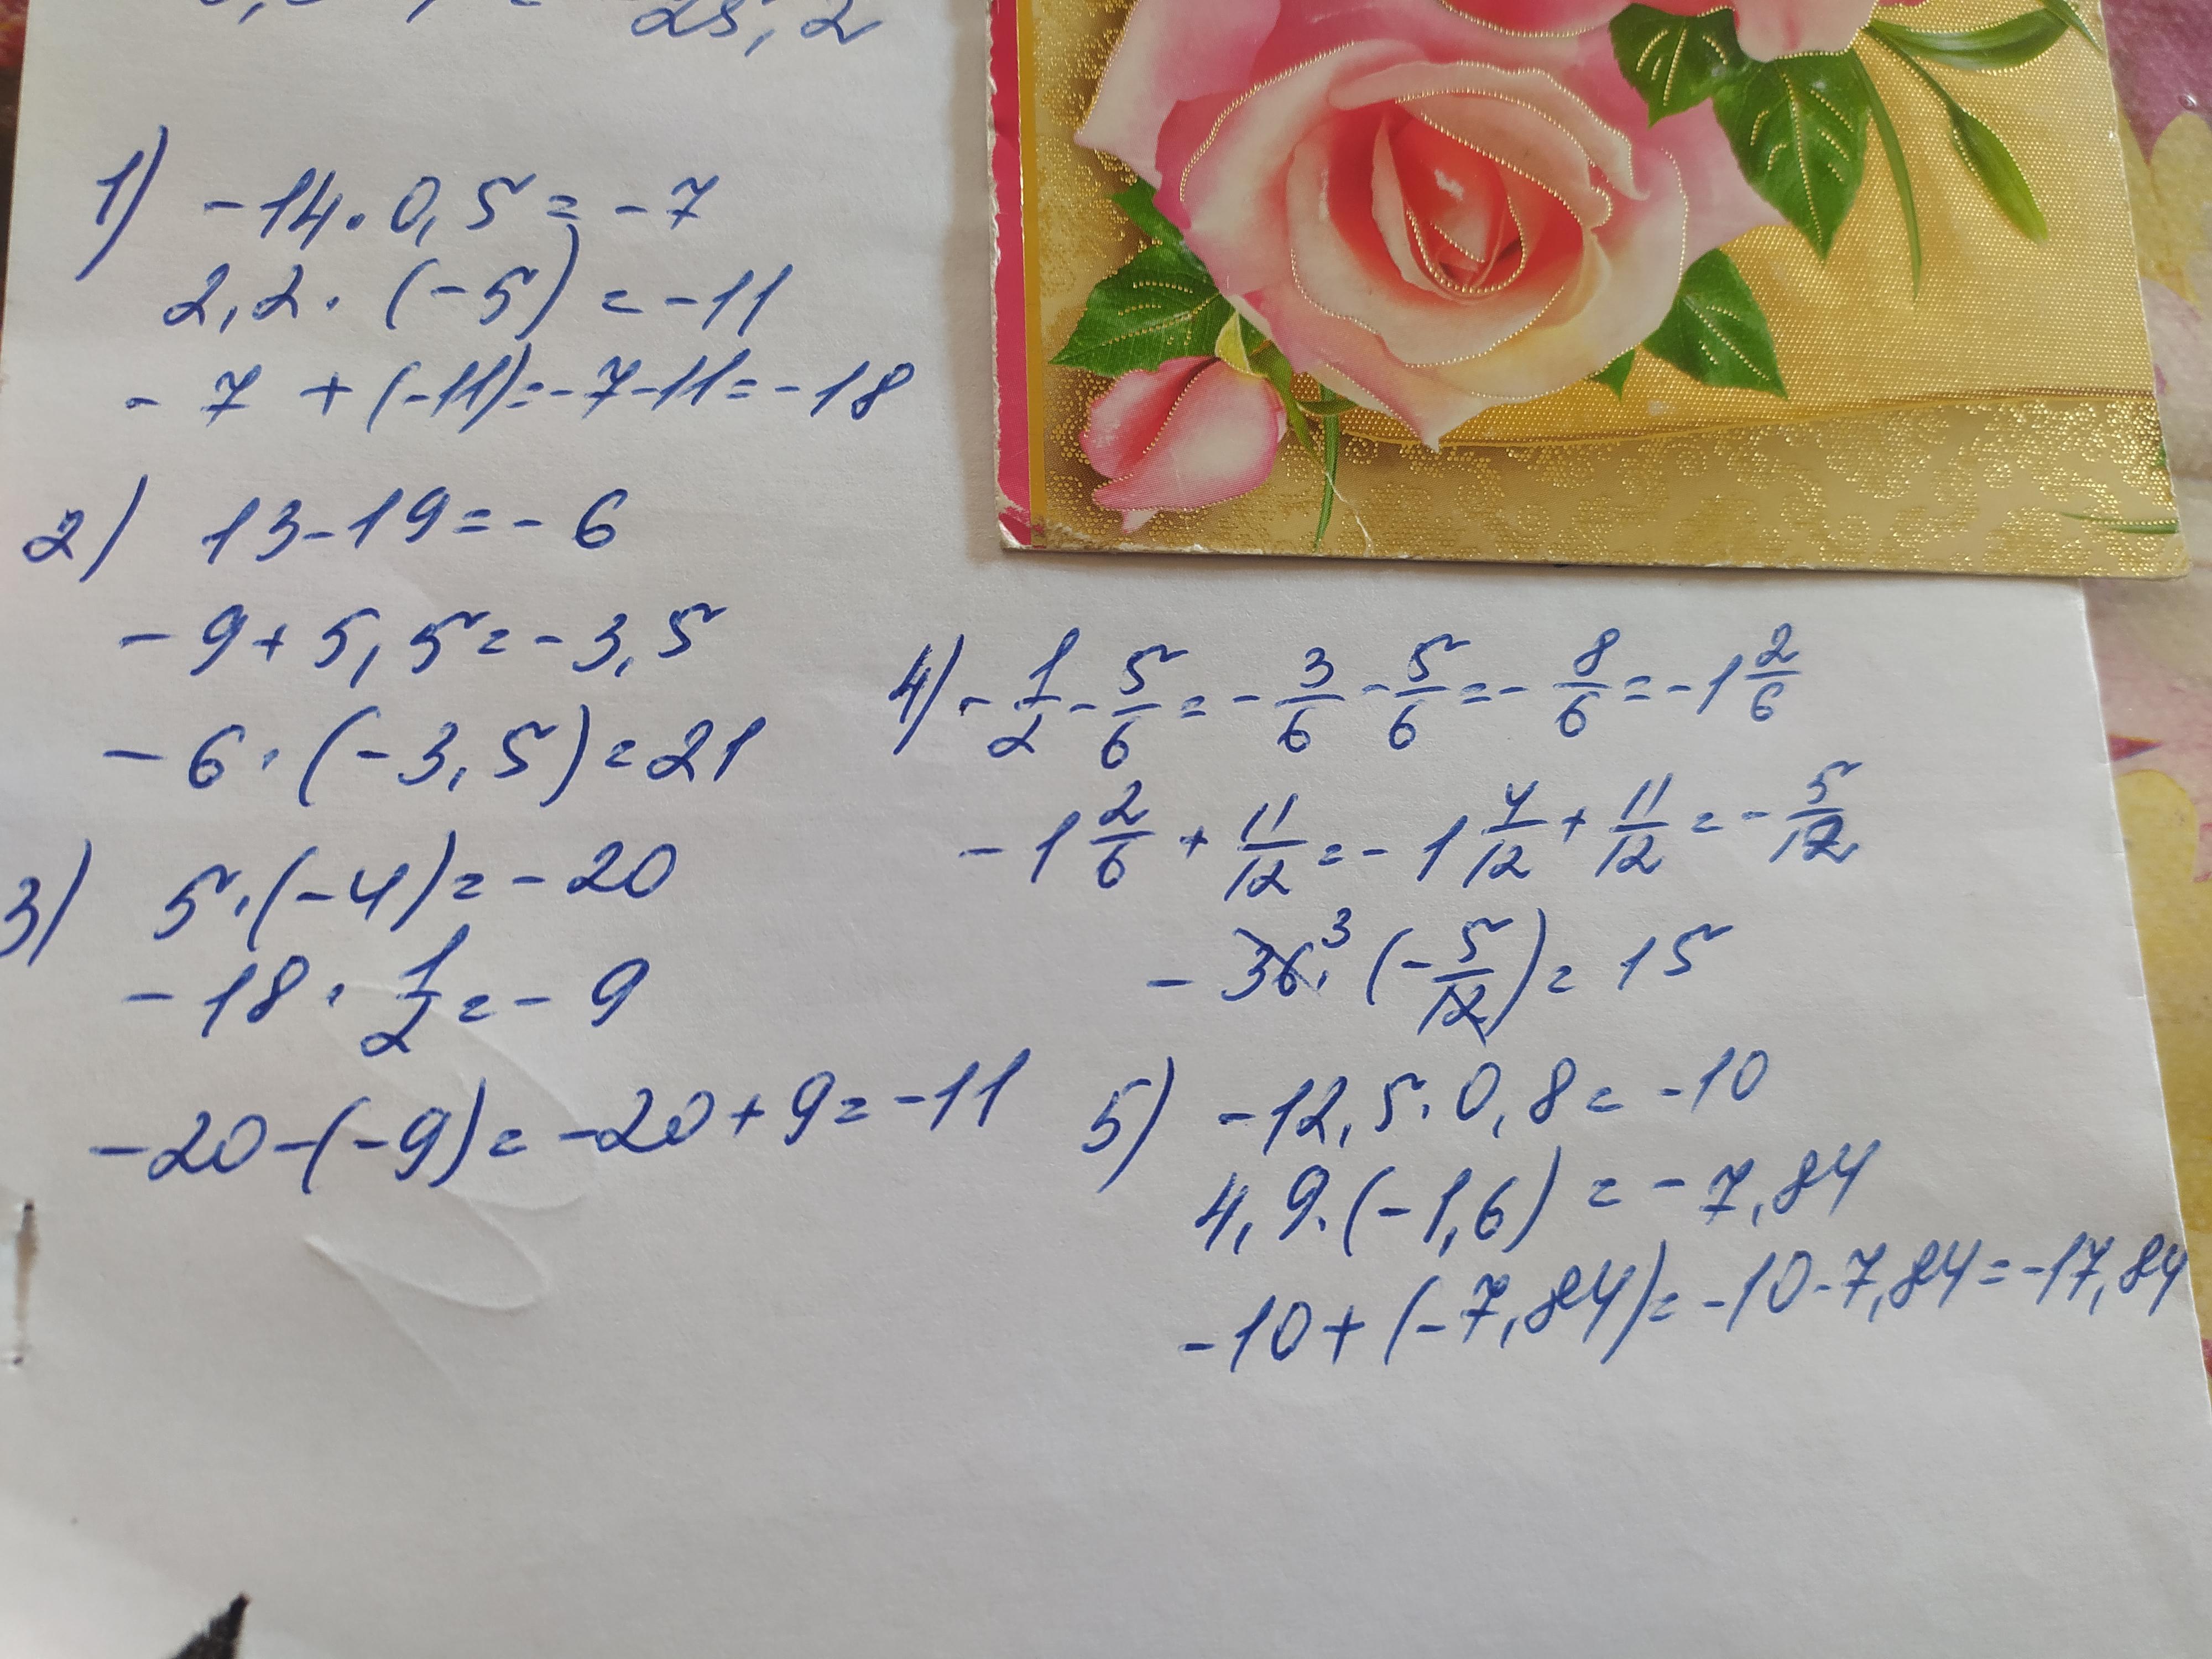 25,2
1) -14·0,5=-7
2,2·(-5)=-11
-7+(-11)=-7-11=-18
2) 13-19=-6
-9+5,5=-3,5
-6·(-3,5)=21
3) 5·(-4)=-20
-18·1/2=-9
-20-(-9)=-20+9=-11
4) -1/2-5/6=-3/6-5/6=-8/6=-1 2/6
-1 2/6+11/12=-1 4/12+11/12=-5/12
-36³·(-5/12)=15
5) -12,5·0,8=-10
4,9·(-1,6)=-7,84
-10+(-7,84)=-10-7,84=-17,84